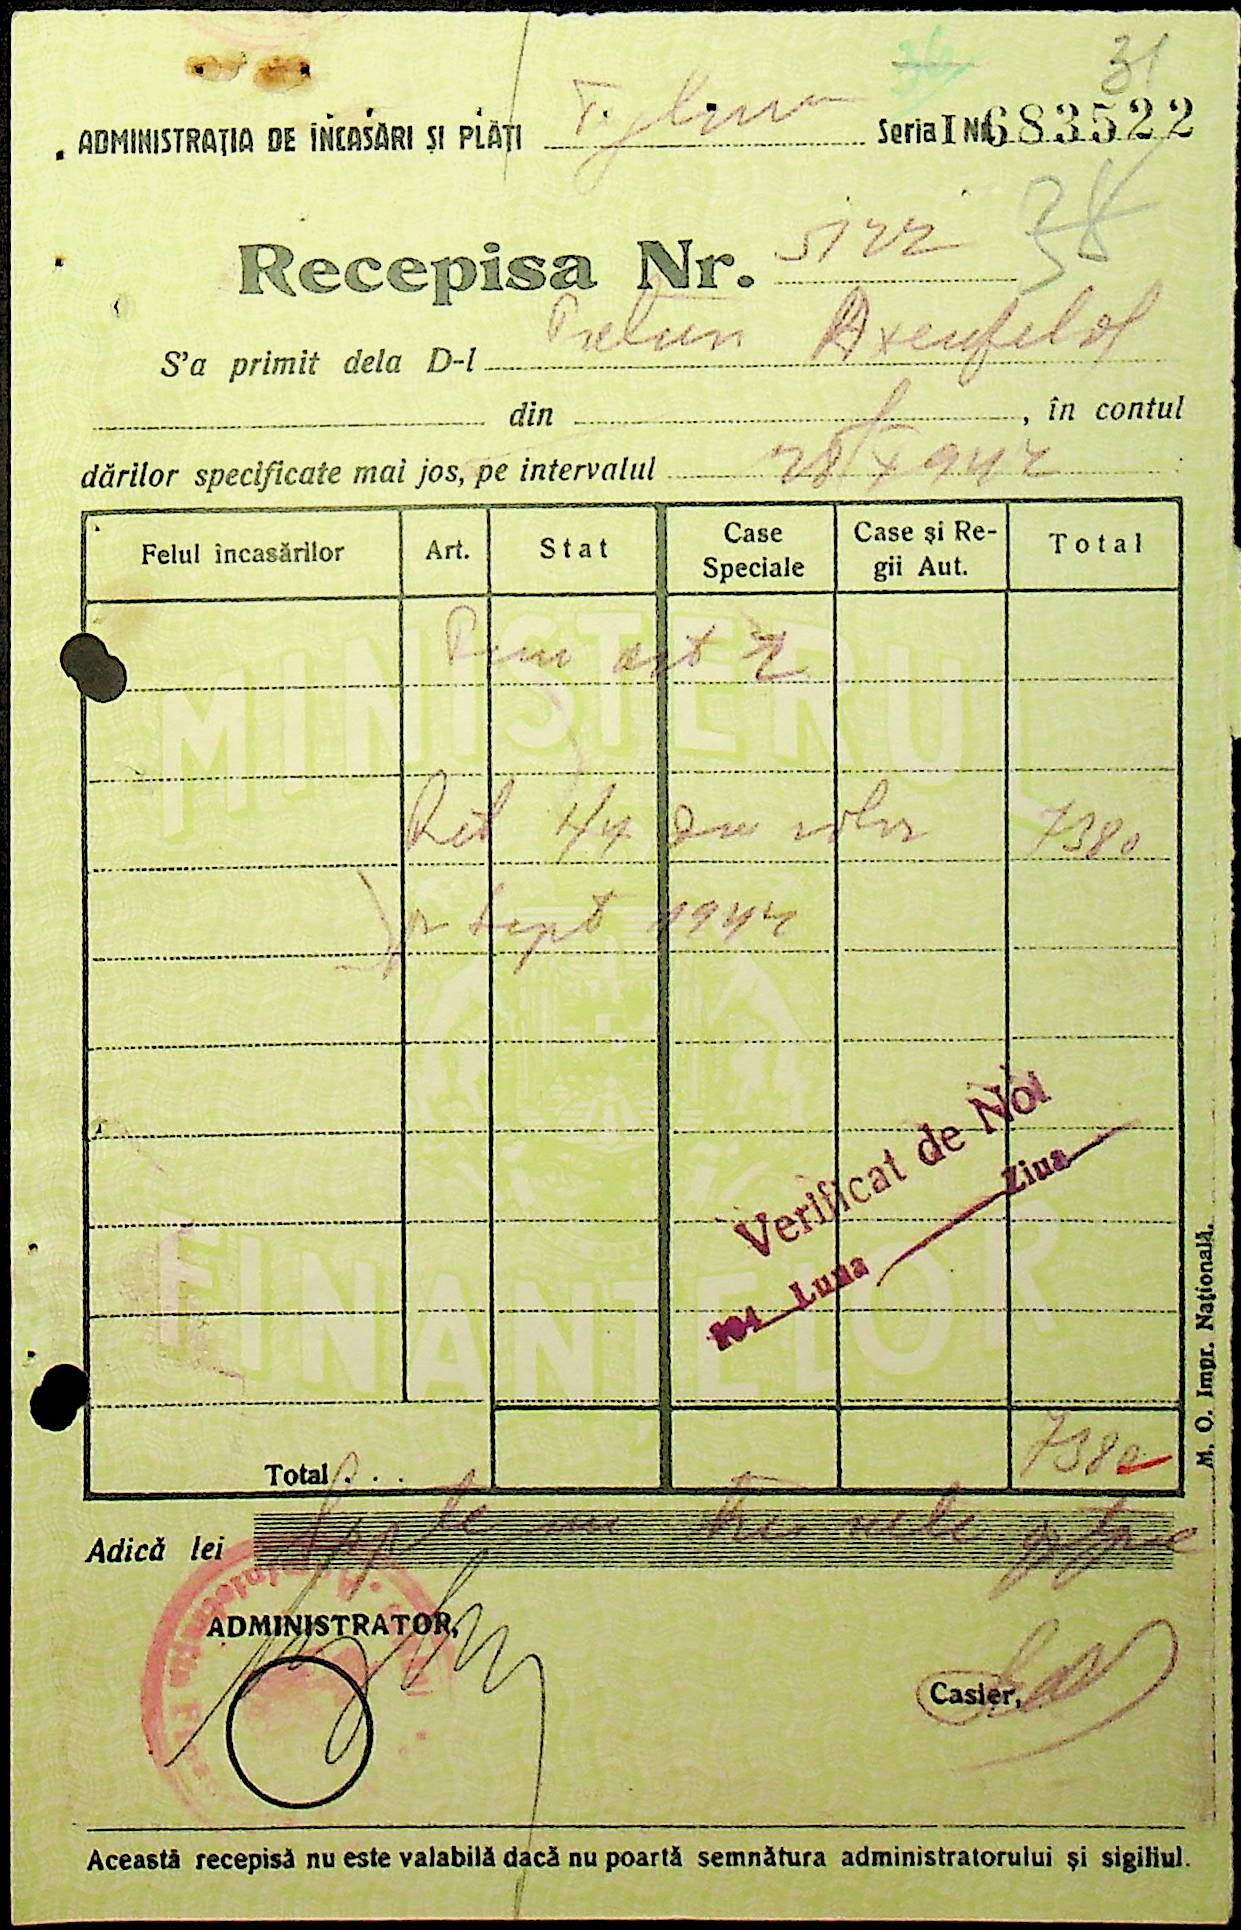 31
ADMINISTRAȚIA DE ÎNCASĂRI ȘI PLĂȚI
Seria I Nr. 683522
38
Recepisa Nr. 5122
S'a primit dela D-l Axenfeld
din , în contul
dărilor specificate mai jos, pe intervalul 28/X 942
Felul încasărilor Art. Stat Case Speciale Case și Regii Aut. Total
art 2
7380
Sept 1942
MINISTERUL
FINANȚELOR
Verificat de Noi
194 Luna Ziua
Total . . . 7380
Adică lei Șapte mii trei sute
ADMINISTRATOR,
Casier,
M. O. Impr. Națională.
Această recepisă nu este valabilă dacă nu poartă semnătura administratorului și sigiliul.